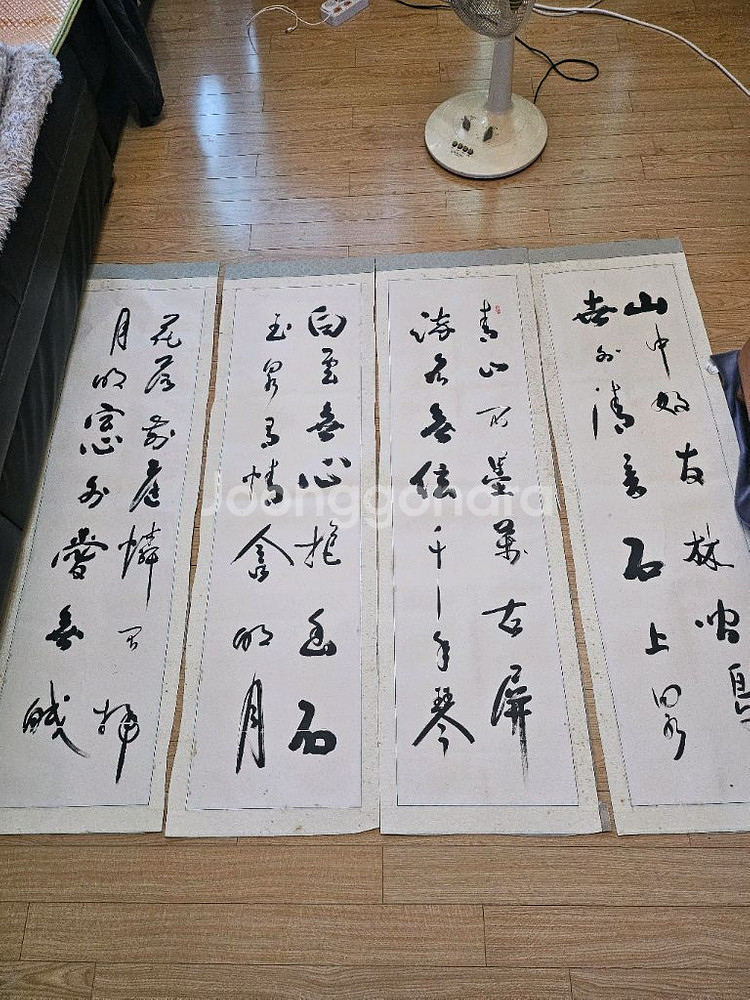 山中好友林間鳥
世外清音石上泉
青山不墨萬古屏
流水無絃千年琴
白雲無心抱幽石
玉泉有情含明月
花落前庭憐不掃
月明窓外愛無眠
Joonggonara